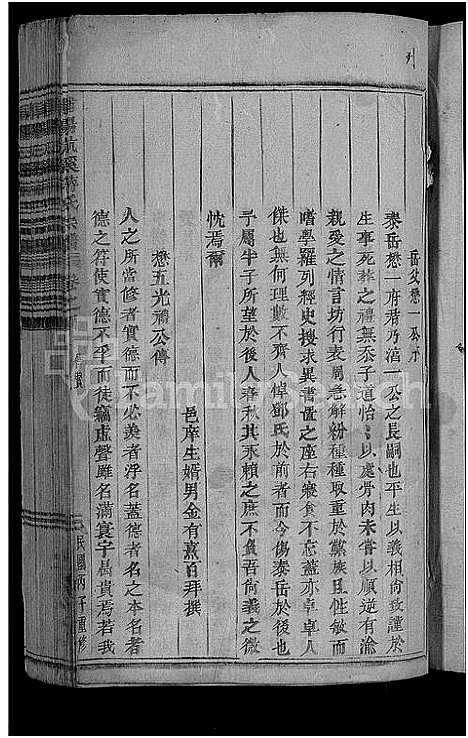 岳父懋一公示
泰岳懋一府君乃涫一公之長嗣也平生以義相尙致謹於
生事死葬之禮無忝子道怡〻以處骨肉未嘗以順逆有渝
親愛之情言坊行表周急解紛種種取重於黨族且性敏而
嗜學羅列經史搜求異書置之座右寢食不忘蓋亦卓卓人
傑也無何理數不齊人悼鄧氏於前者而今傷泰岳於後也
予屬半子所望於後人春秋其永賴之庶不負吾尙義之微
忱焉爾
邑庠生婿男金有薰百拜撰
懋五光禮公傳
人之所當修者實德而不必羨者浮名蓋德者名之本名者
德之符使實德不孚而徒竊虛聲雖名滿寰宇曷貴焉若我
氏宗譜
民國丙子重修
FamilySearch